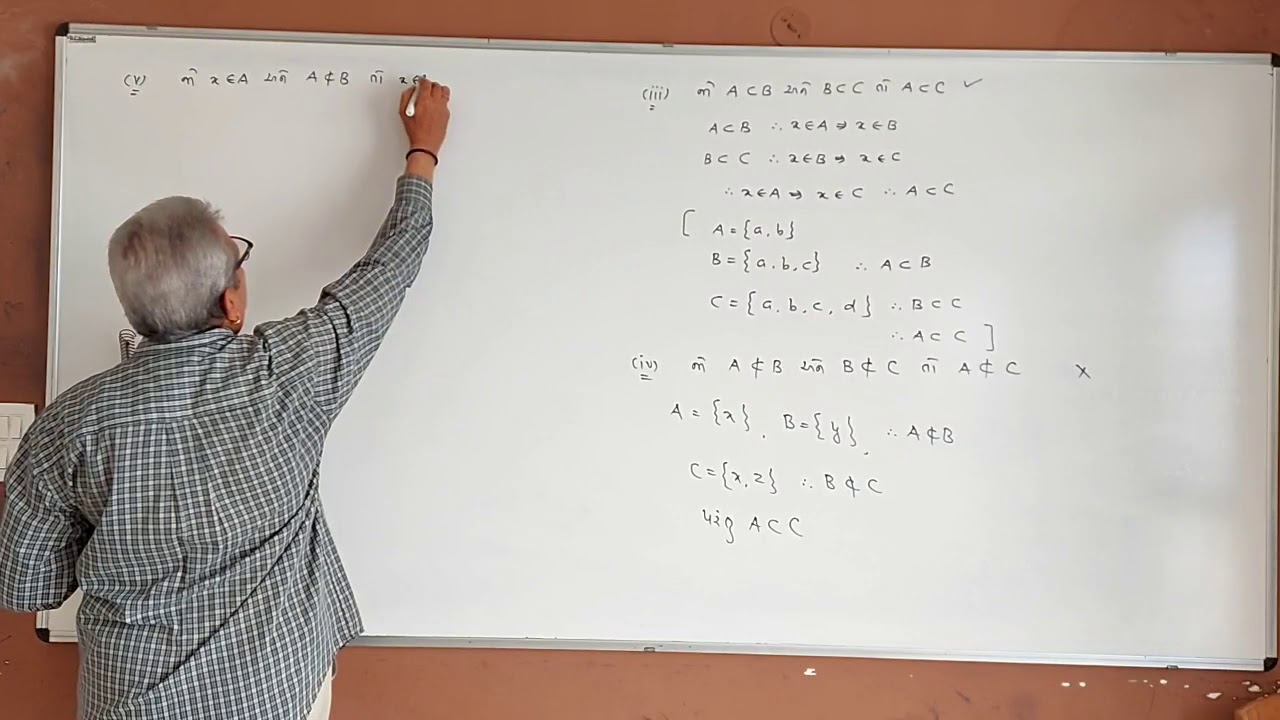 (v) જો x ∈ A અને A ⊄ B તો x ∈
(iii) જો A ⊂ B અને B ⊂ C તો A ⊂ C ✓
A ⊂ B ∴ x ∈ A ⇒ x ∈ B
B ⊂ C ∴ x ∈ B ⇒ x ∈ C
∴ x ∈ A ⇒ x ∈ C ∴ A ⊂ C
[ A = {a, b}
B = {a, b, c} ∴ A ⊂ B
C = {a, b, c, d} ∴ B ⊂ C
∴ A ⊂ C ]
(iv) જો A ⊄ B અને B ⊄ C તો A ⊄ C X
A = {x}, B = {y}, ∴ A ⊄ B
C = {x, z} ∴ B ⊄ C
પરંતુ A ⊂ C